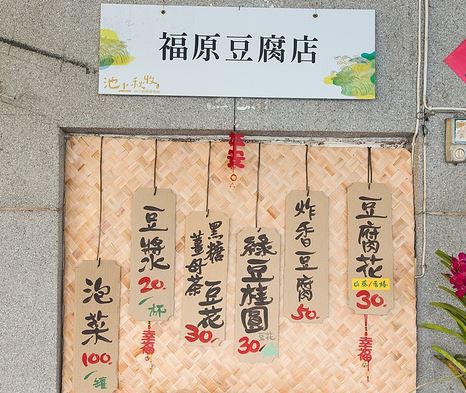 福原豆腐店
池上秋收
豆腐花
30.
幸福
炸香豆腐
50.
綠豆桂圓
豆花
30.
黑糖
薑母茶
豆花
30.
豆漿
20.
杯
幸福
泡菜
100.
罐